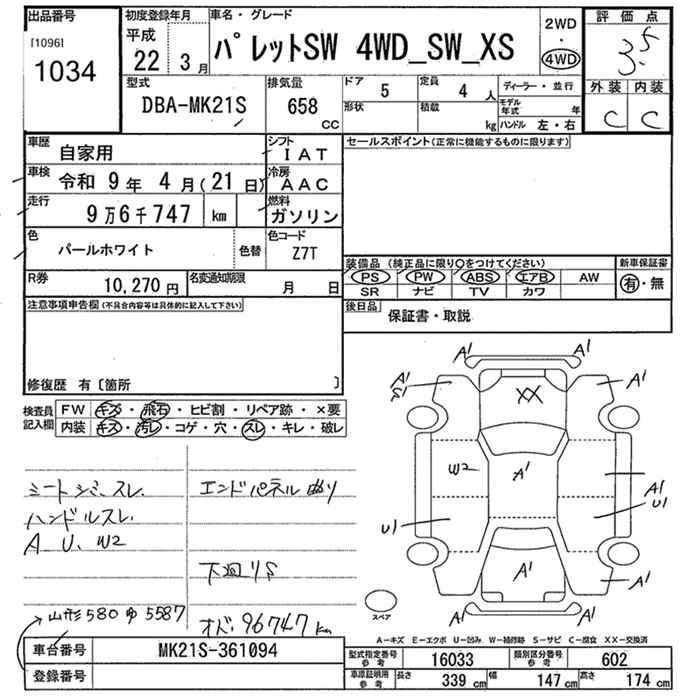 出品番号
[1096]
1034
初度登録年月
平成
22年 3月
車名・グレード
パレットSW 4WD_SW_XS
2WD
・
4WD
評価点
3.5
外装 内装
C C
型式
DBA-MK21S
排気量
658
CC
ドア
5
定員
4 人
形状
積載
kg
ディーラー・並行
モデル年式 年
ハンドル 左・右
車歴
自家用
シフト
IAT
車検
令和 9年 4月(21日)
冷房
AAC
走行
9万6千747 km
燃料
ガソリン
色
パールホワイト
色替
色コード
Z7T
R券
10,270円
名変通知期限
月 日
セールスポイント(正常に機能するものに限ります)
装備品 (純正品に限り○をつけてください)
PS PW ABS エアB AW
SR ナビ TV カワ
新車保証書
有・無
後日品
保証書・取説
注意事項申告欄(不具合内容等は具体的に記入して下さい)
修復歴 有〔箇所 〕
検査員記入欄
FW キズ・飛石・ヒビ割・リペア跡・×要
内装 キズ・汚レ・コゲ・穴・スレ・キレ・破レ
シートシミ、スレ.
ハンドルスレ.
A U. W2
エンドパネルぬり
下廻りS
山形580ゆ5587
オド.96747km
A1 A1
A1
S1
A1
XX
W2
A1
A1
U1
U1
A1
A1 A1
スペア
A-キズ E-エクボ U-凹み W-補修跡 S-サビ C-腐食 XX-交換済
車台番号
MK21S-361094
登録番号
型式指定番号
参考
16033
類別区分番号
参考
602
車庫証明用
参考
長さ
339 cm
幅
147 cm
高さ
174 cm